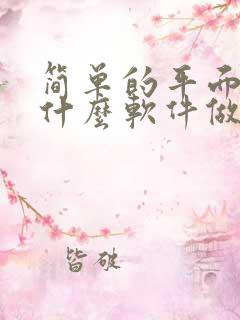 简单的平面
什麼軟件做
皆破